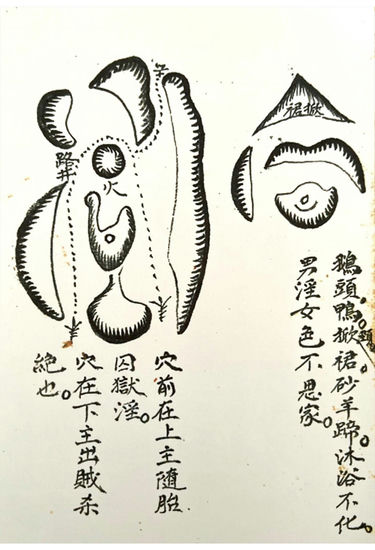 掀裙
鵝頭鴨頸掀裙砂羊蹄沐浴不化。
男淫女色不思家。
路井
火
穴前在上主隨胎
囚獄淫。
穴在下主出賊杀
絶也。